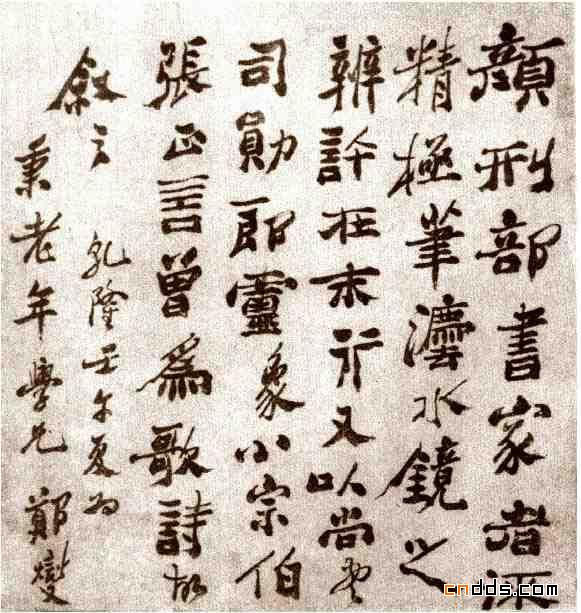 顏刑部書家者流
精極筆灋水鏡之
辨許在末行又以尚書
司勛郎靈象小宗伯
張正言曾爲歌詩故
敘之
乾隆壬午夏為
秉老年學兄 鄭燮
cndds.com